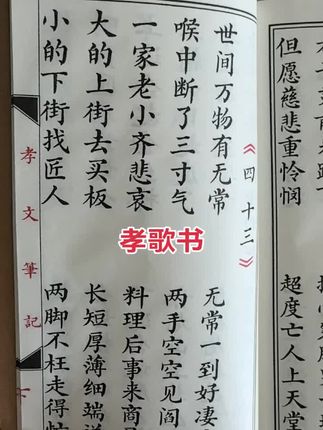 但愿慈悲重怜悯
超度亡人上天堂
《四十三》
世间万物有无常
无常一到好凄
喉中断了三寸气
两手空空见阎
一家老小齐悲哀
料理后事来商
大的上街去买板
长短厚薄细端
小的下街找匠人
两脚不枉走得忙
孝文筆記
孝歌书